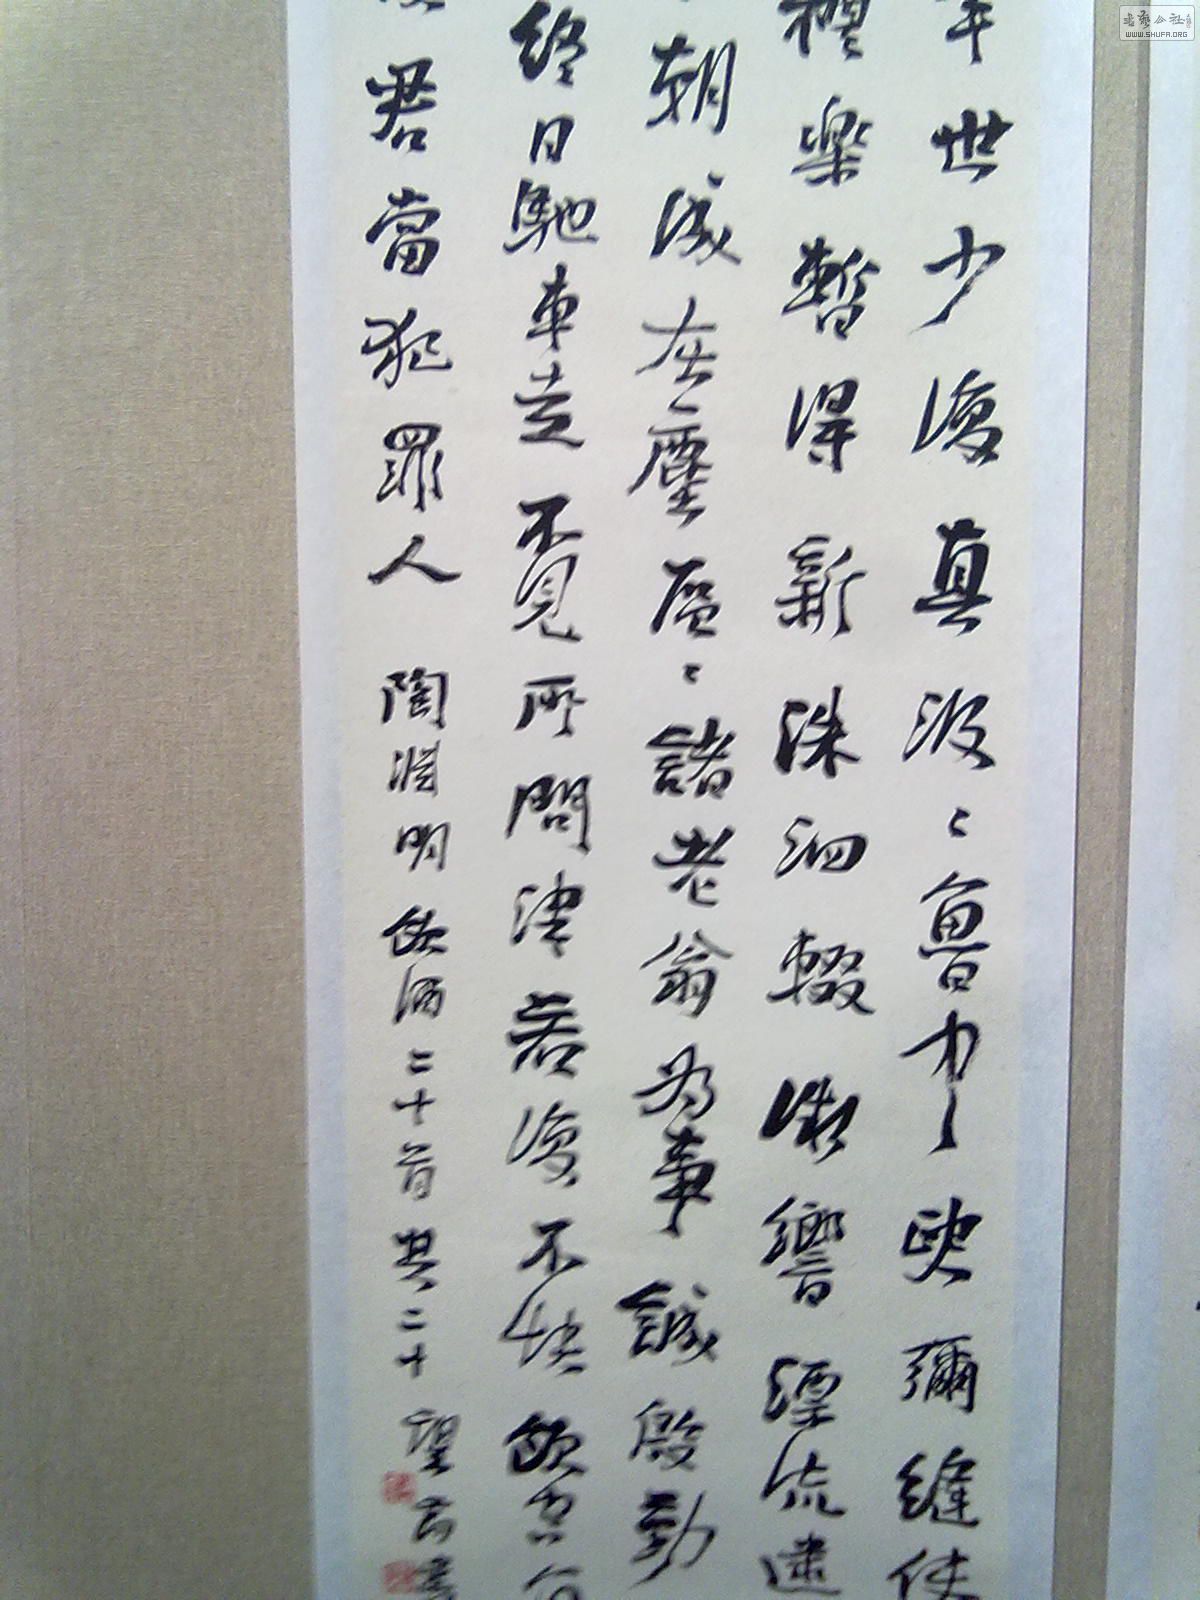 世少復真汲〻魯中叟彌縫使
禮樂暫得新洙泗輟微響漂流逮
朝成灰塵區〻諸老翁為事誠殷勤
終日馳車走不見所問津若復不快飲空負
君當犯罪人 陶淵明飲酒二十首其二十
书艺公社
WWW.SHUFA.ORG